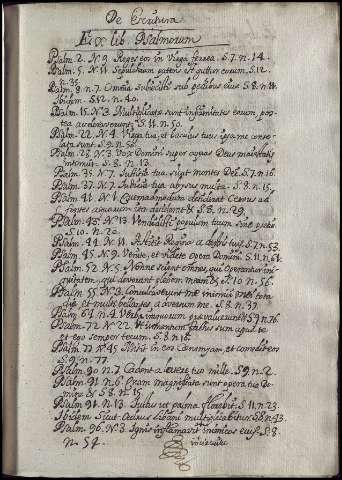 De Escritura
Ex lib. Psalmorum
Psalm. 2. N. 9. Reges eos in Virga ferrea. S. 7. n. 14.
Psalm. 5. N. 11 Sepulchrum patens est guttur eorum. S. 12.
n. 35.
Psalm. 8. n. 7. Omnia subiecisti sub pedibus eius. S. 8. n.
Ibidem. S. 12. n. 40.
Psalm. 15. N. 3. Multiplicatæ sunt infirmitates eorum, pos-
tea acceleraverunt. S. 11. n. 50.
Psalm. 22. N. 4. Virga tua, et baculus tuus ipsa me conso-
lata sunt. S. 9. n. 56.
Psalm. 28. N. 3. Vox Domini super aquas Deus maiestatis
intonuit. S. 8. n. 13.
Psalm. 35. N. 7. Iustitia tua sicut montes Dei. S. 7. n. 16.
Psalm. 37. N. 7. Iudicia tua abyssus multa. S. 8. n. 15.
Psalm. 41. N. 1. Quemadmodum desiderat Cervus ad
fontes aquarum ita desiderat & S. 8. n. 29.
Psalm. 43. N. 13 Vendidisti populum tuum sine pretio
S. 10. n. 20.
Psalm. 44. N. 11. Astitit Regina a dextris tuis. S. 7. n. 53.
Psalm. 45. N. 9. Venite, et videte opera Domini. S. 11. n. 61.
Psalm. 52. N. 5. Nonne scient omnes, qui operantur ini-
quitatem, qui devorant plebem meam & S. 10. n. 56.
Psalm. 55. N. 3. Conculcaverunt me inimici mei tota
die, et multi bellantes, adversum me. S. 8. n. 37.
Psalm. 64. n. 4. Verba iniquorum prævaluerunt & S. 9. n. 76.
Psalm. 72. N. 22. Ut iumentum factus sum apud te
et ego semper tecum. S. 8. n. 16.
Psalm. 77. N. 45. Misit in eos Cænomyam, et comedit eos
S. 9. n. 77.
Psalm. 90. n. 7. Cadent a latere tuo mille. S. 9. n. 2.
Psalm. 91. n. 6. Quam magnificata sunt opera tua Do-
mine & S. 8. n. 15.
Psalm. 91. n. 13. Iustus ut palma florebit. S. 11. n. 23.
Ibidem. Sicut Cedrus Libani multiplicabitur. S. 8. n. 43.
Psalm. 96. N. 3. Ignis inflamavit inimicos eius. S. 8.
n. 54.